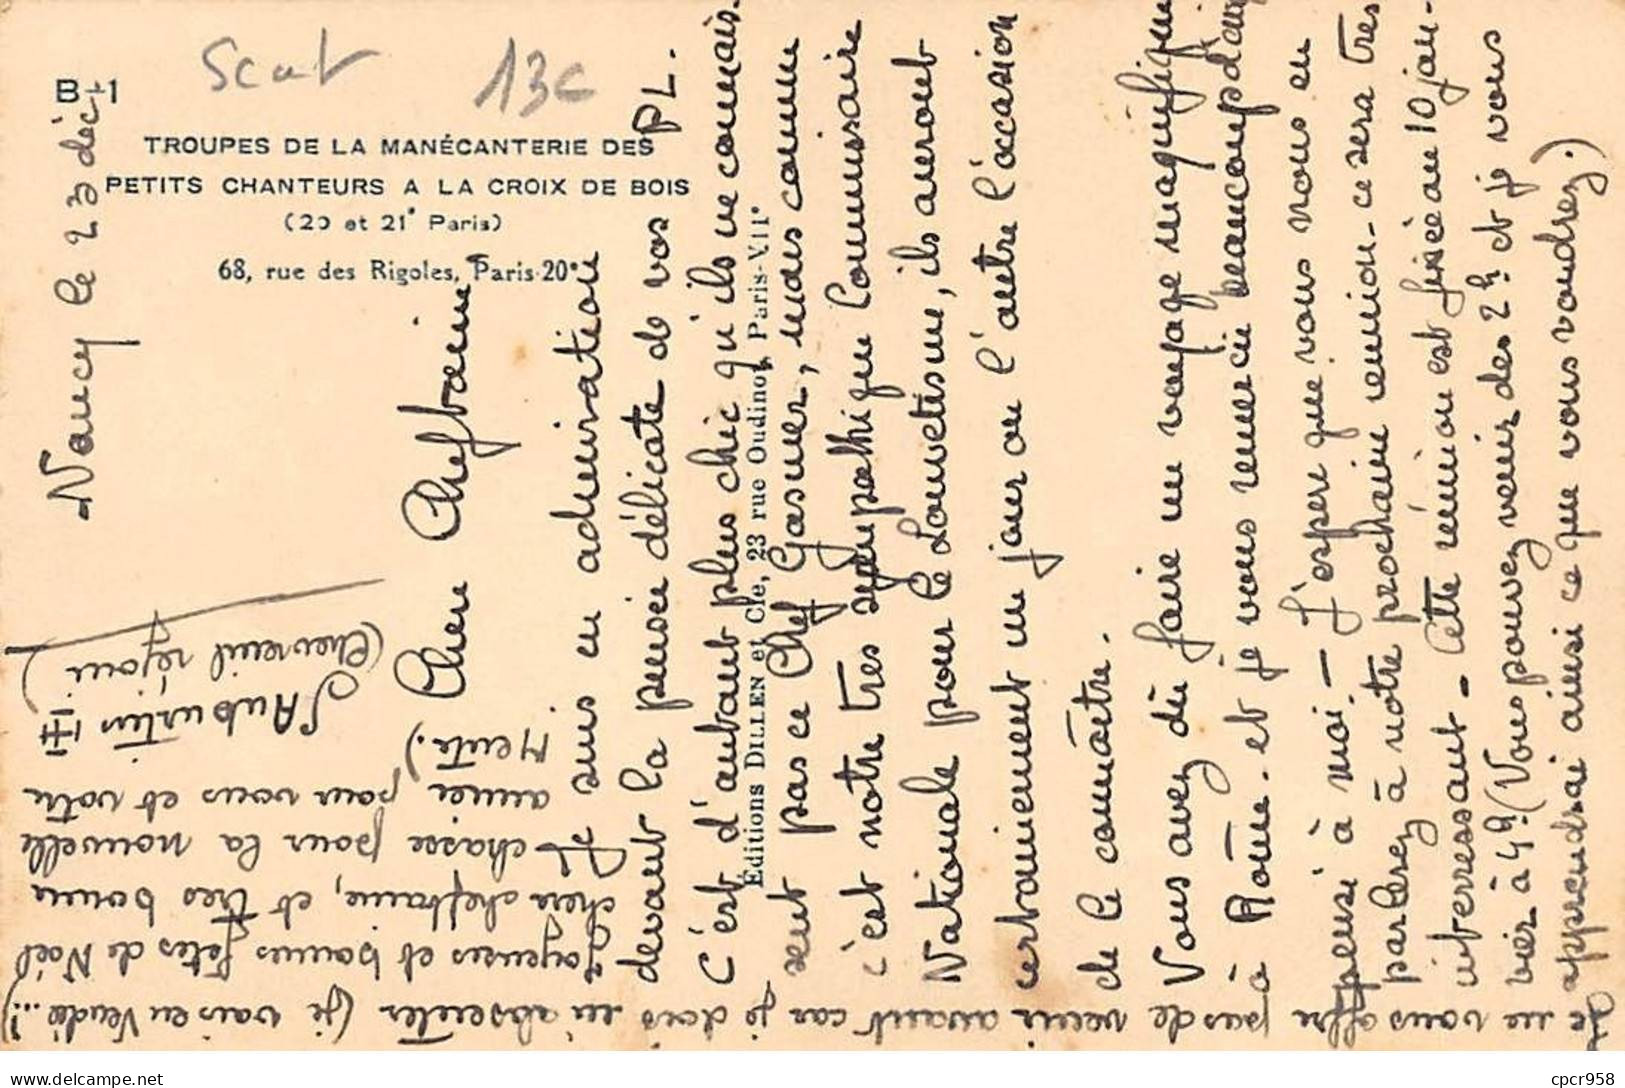 Scout
13c
B-1
TROUPES DE LA MANÉCANTERIE DES
PETITS CHANTEURS A LA CROIX DE BOIS
(20 et 21e Paris)
68, rue des Rigoles, Paris-20e
Editions DILLEN et Cie, 23 rue Oudinot, Paris-VIIe
Nancy le 23 déc.
Chère Cheftaine
Je suis en admiration
devant la pensée délicate de vos PL.
C'est d'autant plus chic qu'ils ne connais-
sent pas ce Chef Gasner, mais comme
c'est notre très sympathique Commissaire
National pour le Louvetisme, ils auront
certainement un jour ou l'autre l'occasion
de le connaître.
Vous avez dû faire un voyage magnifique
à Rome. et je vous remercie beaucoup d'avoir
pensé à moi - J'espère que vous nous en
parlerez à notre prochaine réunion - ce sera très
intéressant - Cette réunion est fixée au 10 jan-
vier à 4h (Vous pouvez venir dès 2h et je vous
apprendrai ainsi ce que vous voudrez.)
Je ne vous offre pas de venir avant car je dois
m'absenter (je vais en Vendée...)
Joyeuses et bonnes fêtes de Noël
chère cheftaine, et très bonne
chasse pour la nouvelle
année pour vous et votre
Meute.)
S'Aubertin
(Chevreuil réjoui)
cpcr958